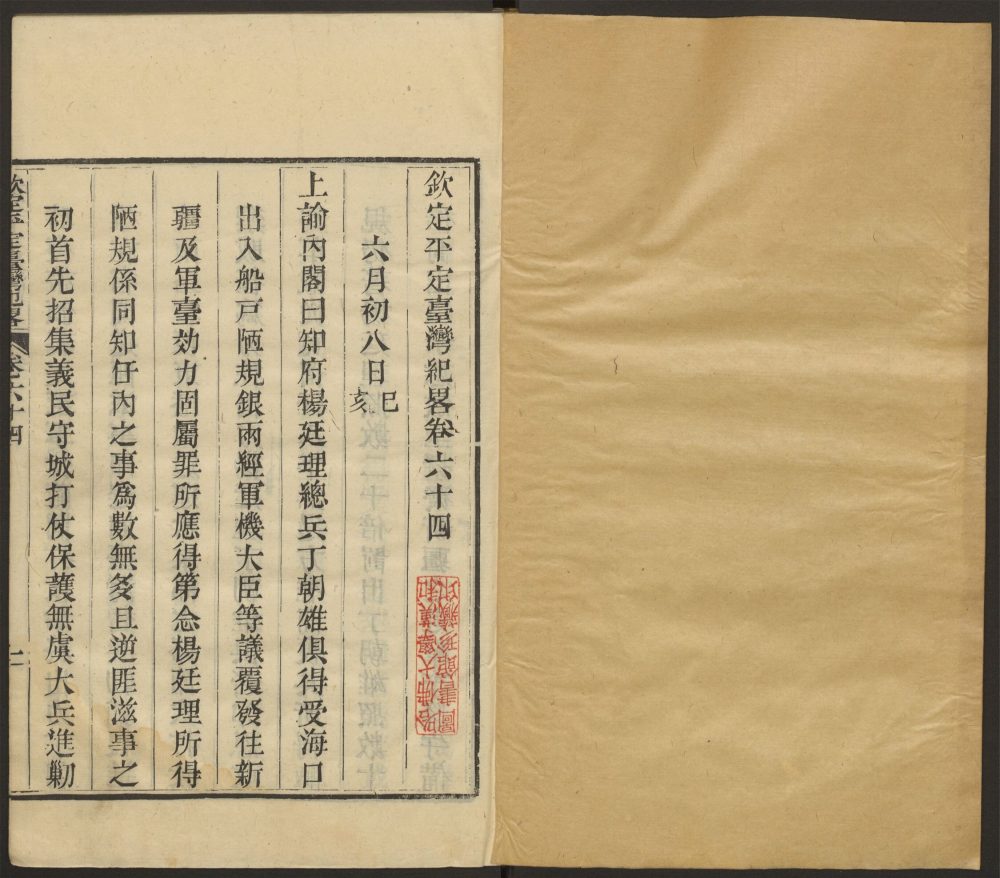 欽定平定臺灣紀畧卷六十四
六月初八日己亥
上諭內閣曰知府楊廷理總兵丁朝雄俱得受海口
出入船戸陋規銀兩經軍機大臣等議覆發往新
疆及軍臺効力固屬罪所應得第念楊廷理所得
陋規係同知任內之事爲數無多且逆匪滋事之
初首先招集義民守城打仗保護無虞大兵進剿
欽定平定臺灣紀畧
卷六十四
一
哈佛大學漢和
圖書館珍藏印